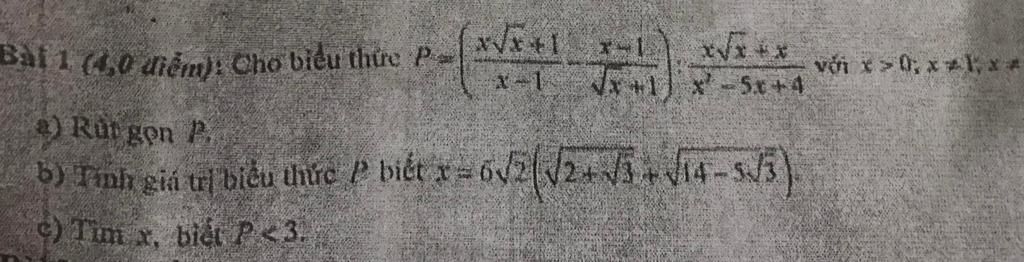 Bài 1 (4,0 điểm): Cho biểu thức P = ( (x√x + 1)/(x − 1) − (x − 1)/(√x + 1) ) : (x√x + x)/(x² − 5x + 4) với x > 0; x ≠ 1; x ≠
a) Rút gọn P.
b) Tính giá trị biểu thức P biết x = 6√2(√(2+√3) + √(14 − 5√3)).
c) Tìm x, biết P < 3.